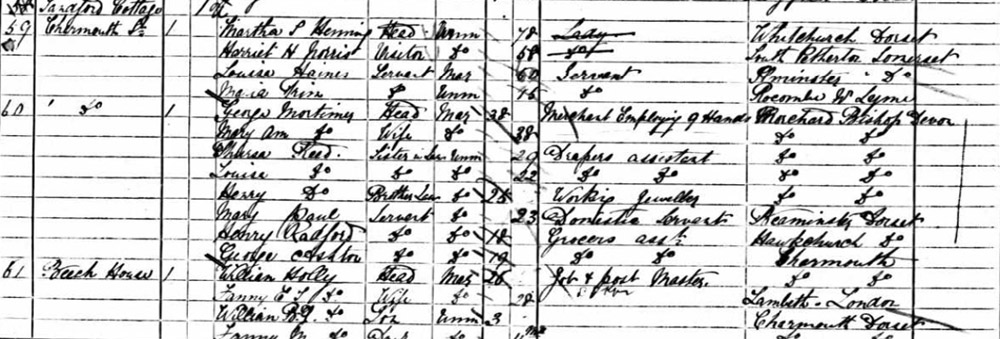 58 Sandford Cottage 1
59 Charmouth St 1 Martha S Henning Head Unm 78 Lady Whitchurch Dorset
Harriet H Norris Visitor Do 58 Do South Petherton Somerset
Louisa Haines Servant Mar 60 Servant Ilminster Do
Maria Do Unm 45 Do Rocombe Nr Lyme
60 Do 1 George Mortimer Head Mar 38 Merchant Employing 9 Hands Morchard Bishop Devon
Mary Ann Do Wife Do 38 Do Do
Reed Sister in Law Unm 29 Drapers assistant Do Do
Louisa Do Do Do 22 Do Do Do Do
Henry Do Brother Law Do 25 Working Jeweller Do Do
Mary Paul Servant Do 23 Domestic Servant Beaminster Dorset
Henry Radford Do Do 18 Grocers asst Hawkchurch Do
George Ashton Do Do 19 Do Do Charmouth
61 Beach House 1 William Holly Head Mar 26 Job & post Master Do Do
Fanny E S Do Wife Do 28 Lambeth London
William Do Son Unm 3 Charmouth Dorset
Fanny Do